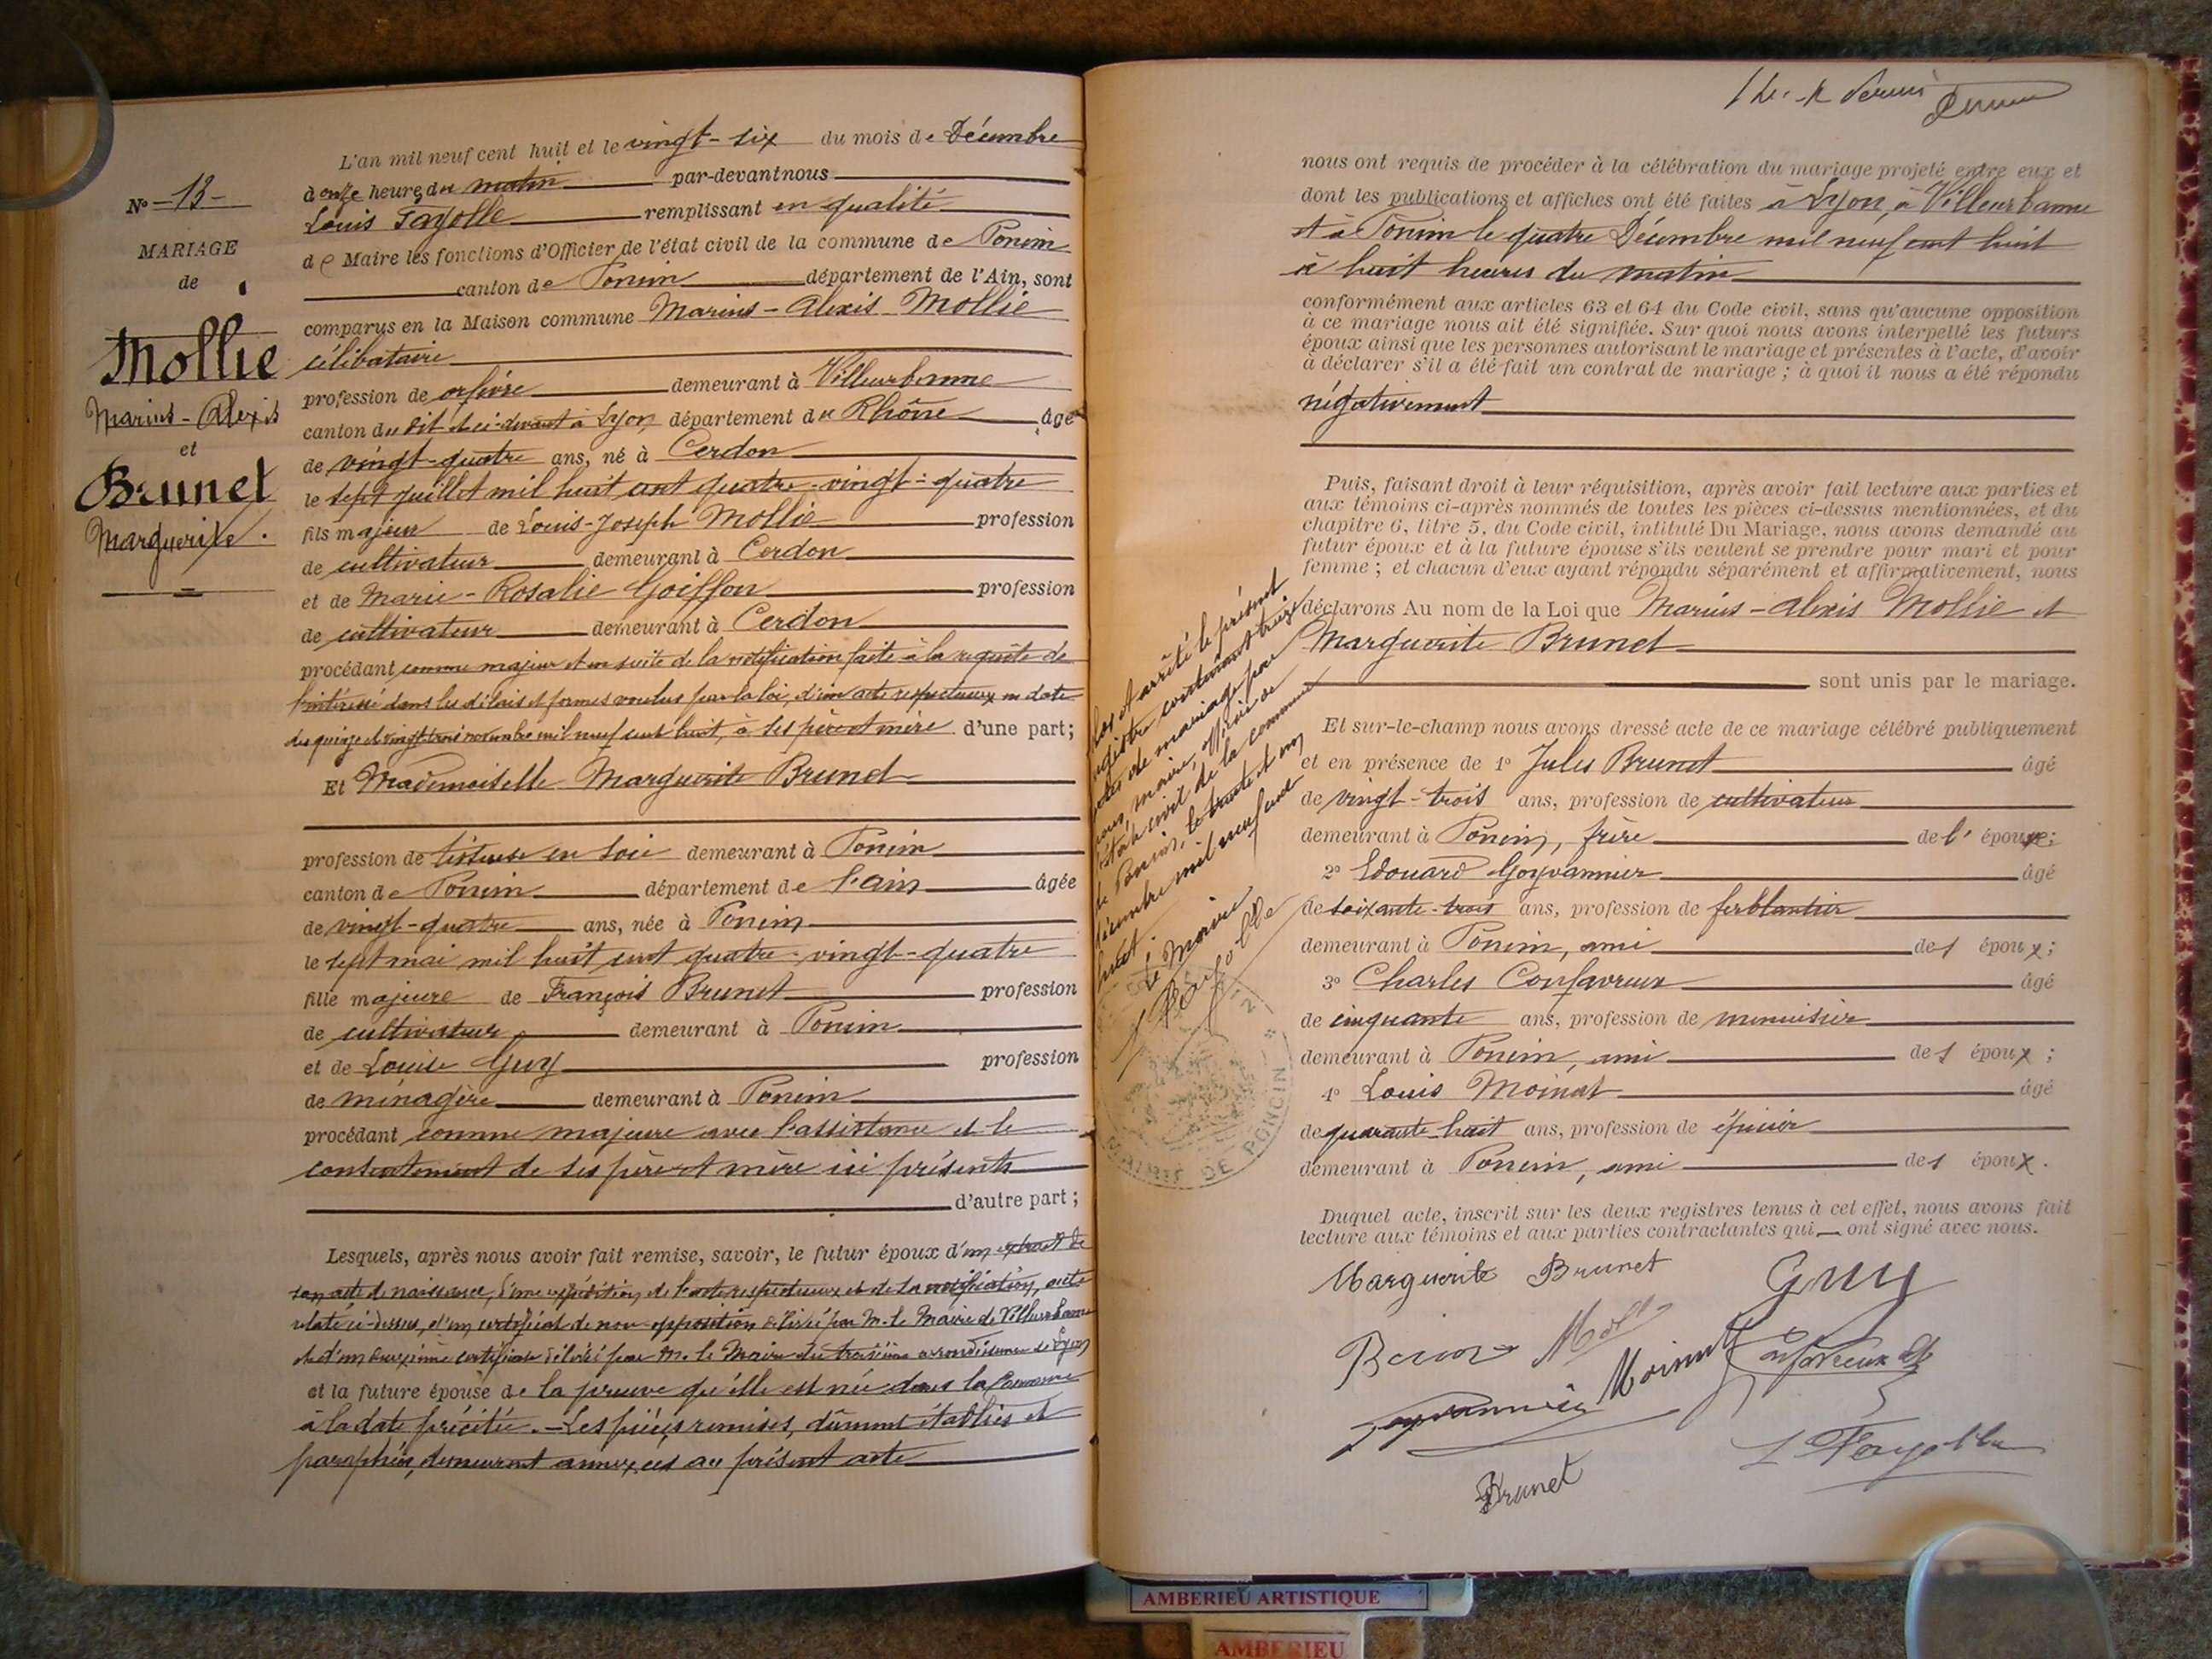 L'an mil neuf cent huit et le vingt-six du mois de Décembre
à onze heures du matin par-devant nous
Louis Fayolle remplissant en qualité
de Maire les fonctions d'Officier de l'état civil de la commune de Poncin
canton de Poncin département de l'Ain, sont
comparus en la Maison commune Marius-Alexis Mollie
célibataire
profession de orfèvre demeurant à Villeurbanne
canton du dit et ci-devant à Lyon, département du Rhône âgé
de vingt-quatre ans, né à Cerdon
le sept juillet mil huit cent quatre-vingt-quatre
fils majeur de Louis-Joseph Mollie profession
de cultivateur demeurant à Cerdon
et de Marie-Rosalie Goiffon profession
de cultivateur demeurant à Cerdon
procédant comme majeur et en suite de la notification faite à la requête de
l'intéressé dans les délais et formes voulus par la loi, d'un acte respectueux en date
des quinze et vingt-trois novembre mil neuf cent huit, à ses père et mère d'une part;
Et Mademoiselle Marguerite Brunet
profession de tisseuse en soie demeurant à Poncin
canton de Poncin département de l'Ain âgée
de vingt-quatre ans, née à Poncin
le sept mai mil huit cent quatre-vingt-quatre
fille majeure de François Brunet profession
de cultivateur demeurant à Poncin
et de Louise Guy profession
de ménagère demeurant à Poncin
procédant comme majeure avec l'assistance et le
consentement de ses père et mère ici présents
d'autre part;
Lesquels, après nous avoir fait remise, savoir, le futur époux d'un extrait de
son acte de naissance, d'une expédition de l'acte respectueux et de la notification, acte
relaté ci-dessus, d'un certificat de non-opposition délivré par M. le Maire de Villeurbanne
et d'un deuxième certificat délivré par M. le Maire du troisième arrondissement de Lyon
et la future épouse de la preuve qu'elle est née dans la Commune
à la date précitée. - Les pièces remises, dûment établies et
paraphées, demeurent annexées au présent acte
No -13-
MARIAGE
de
Mollie
Marius-Alexis
et
Brunet
Marguerite.
nous ont requis de procéder à la célébration du mariage projeté entre eux et
dont les publications et affiches ont été faites à Lyon, à Villeurbanne
et à Poncin le quatre Décembre mil neuf cent huit
à huit heures du matin
conformément aux articles 63 et 64 du Code civil, sans qu'aucune opposition
à ce mariage nous ait été signifiée. Sur quoi nous avons interpellé les futurs
époux ainsi que les personnes autorisant le mariage et présentes à l'acte, d'avoir
à déclarer s'il a été fait un contrat de mariage; à quoi il nous a été répondu
négativement
Puis, faisant droit à leur réquisition, après avoir fait lecture aux parties et
aux témoins ci-après nommés de toutes les pièces ci-dessus mentionnées, et du
chapitre 6, titre 5, du Code civil, intitulé Du Mariage, nous avons demandé au
futur époux et à la future épouse s'ils veulent se prendre pour mari et pour
femme; et chacun d'eux ayant répondu séparément et affirmativement, nous
déclarons Au nom de la Loi que Marius-Alexis Mollie et
Marguerite Brunet
sont unis par le mariage.
Et sur-le-champ nous avons dressé acte de ce mariage célébré publiquement
et en présence de 1º Jules Brunet âgé
de vingt-trois ans, profession de cultivateur
demeurant à Poncin, frère de l'épouse;
2º Edouard Goyvannier âgé
de soixante-trois ans, profession de ferblantier
demeurant à Poncin, ami des époux;
3º Charles Confavreux âgé
de cinquante ans, profession de menuisier
demeurant à Poncin, ami des époux;
4º Louis Moinat âgé
de quarante-huit ans, profession de épicier
demeurant à Poncin, ami des époux.
Duquel acte, inscrit sur les deux registres tenus à cet effet, nous avons fait
lecture aux témoins et aux parties contractantes qui ont signé avec nous.
Marguerite Brunet Guy
Moinat
L Fayolle
Brunet
Clos et arrêté le présent
registre contenant treize
actes de mariage par
nous, maire, officier de
l'état civil de la commune
de Poncin, le trente et un
décembre mil neuf cent
huit.
Le Maire
L Fayolle
MAIRIE DE PONCIN
AMBERIEU ARTISTIQUE
AMBERIEU